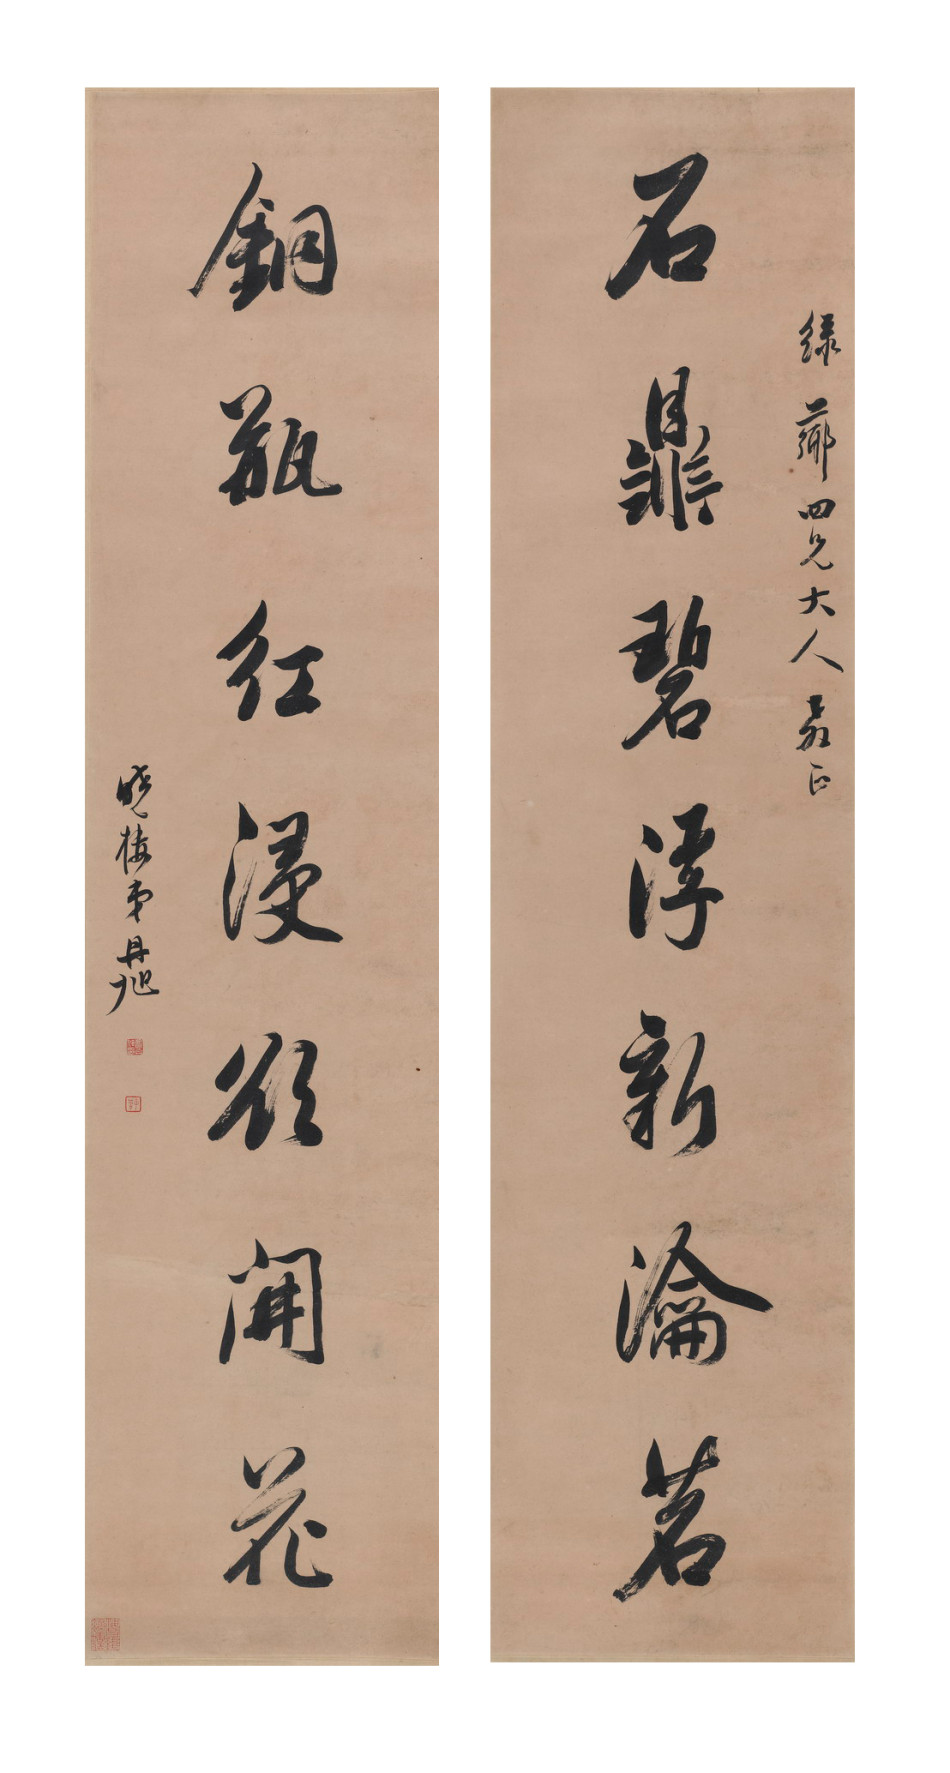 綠薌四兄大人教正
石鼎碧浮新瀹茗
銅瓶紅浸欲開花
曉樓弟丹旭